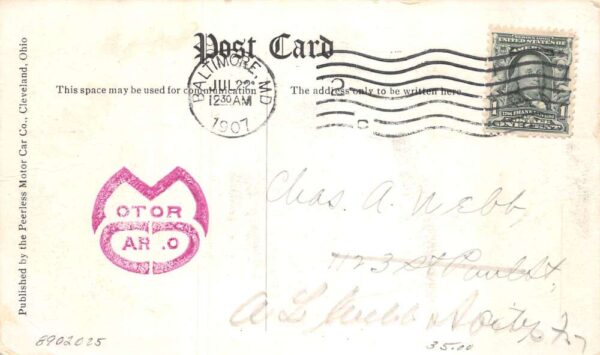 Post Card
This space may be used for communication
The address only to be written here
BALTIMORE, MD.
JUL 22
12 30 AM
1907
UNITED STATES OF AMERICA
1
ONE CENT
Published by the Peerless Motor Car Co., Cleveland, Ohio
MOTOR
CAR CO.
Chas. A. Webb,
1123 St Paul st.
A L Webb
8902025
35.00